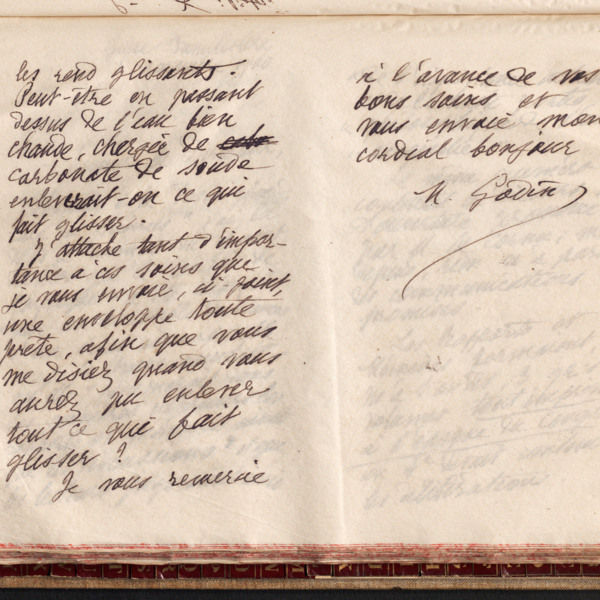 les rend glissants.
Peut-être en passant
dessus de l'eau bien
chaude, chargée de
carbonate de soude
enlèverait-on ce qui
fait glisser.
J'attache tant d'impor-
tance à ces soins que
je vous envoie, ci-joint,
une enveloppe toute
prête, afin que vous
me disiez quand vous
aurez pu enlever
tout ce qui fait
glisser ?
Je vous remercie
à l'avance de vos
bons soins et
vous envoie mon
cordial bonjour
M. Godin